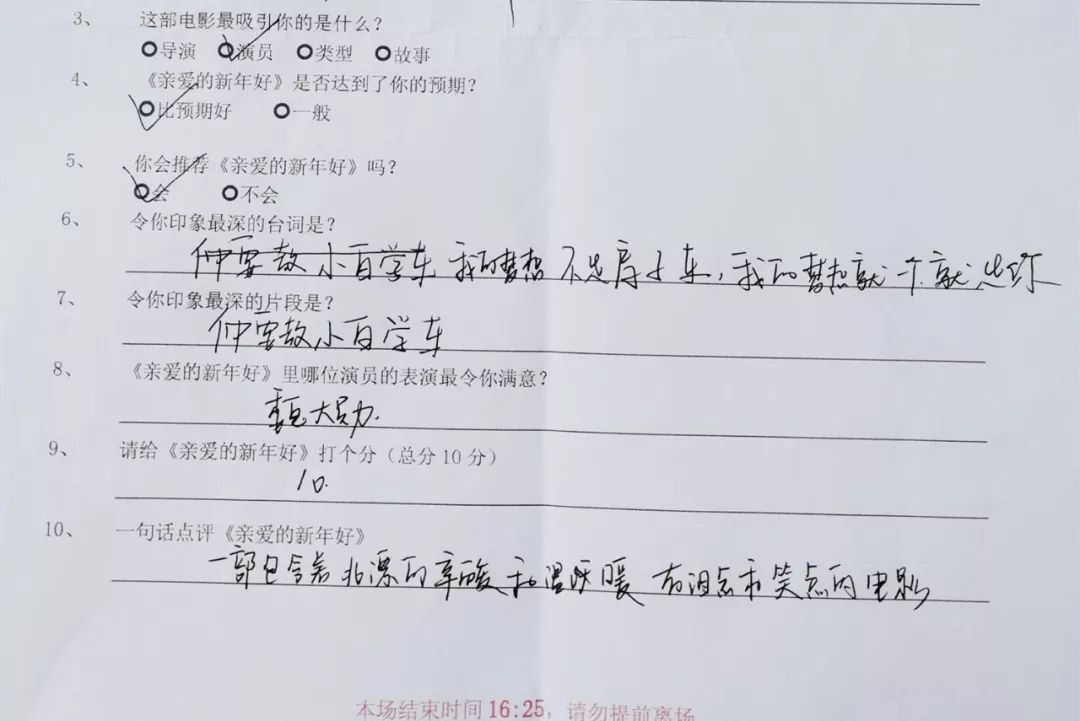 3、 这部电影最吸引你的是什么？
导演 演员 类型 故事
4、 《亲爱的新年好》是否达到了你的预期？
比预期好 一般
5、 你会推荐《亲爱的新年好》吗？
会 不会
6、 令你印象最深的台词是？
仲要教小百学车 我的梦想不是房子车，我的梦想就一个就是你
7、 令你印象最深的片段是？
仲要教小百学车
8、 《亲爱的新年好》里哪位演员的表演最令你满意？
魏大勋.
9、 请给《亲爱的新年好》打个分（总分10分）
10.
10、 一句话点评《亲爱的新年好》
一部包含着北漂的辛酸和温暖 有泪点和笑点的电影
本场结束时间16:25，请勿提前离场